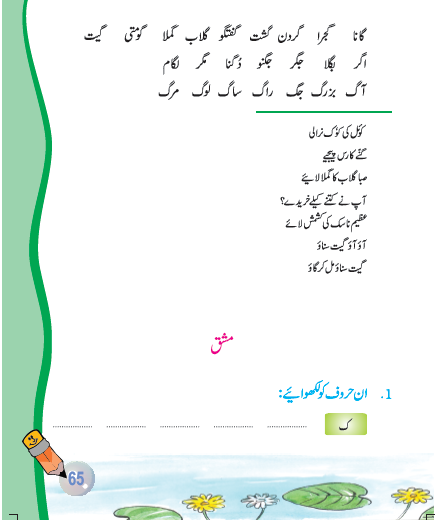 گانا گجرا گردن گشت گفتگو گلاب گملا گومتی گیت
اگر بگلا جگر جگنو دُگنا مگر لگام
آگ بزرگ جگ راگ ساگ لوگ مرگ
کوئل کی کوک نرالی
گنّے کا رس پیجیے
صبا گلاب کا گملا لایئے
آپ نے کتنے کیلے خریدے؟
عظیم ناسک کی کشمش لائے
آؤ آؤ گیت سناؤ
گیت سناؤ مل کر گاؤ
مشق
1. ان حروف کو لکھوائیے:
ک
65